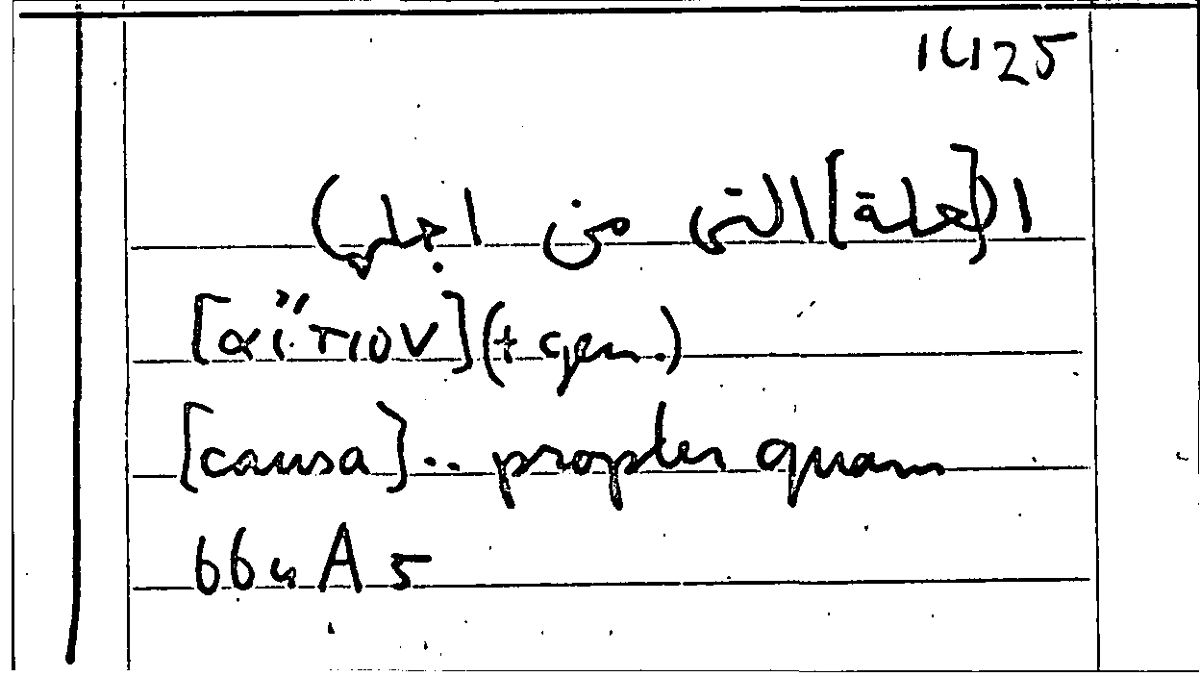 1425
ا(لعلة] التى من اجلها)
[αἴτιον] (+ gen.)
[causa] .. propter quam
664 A 5